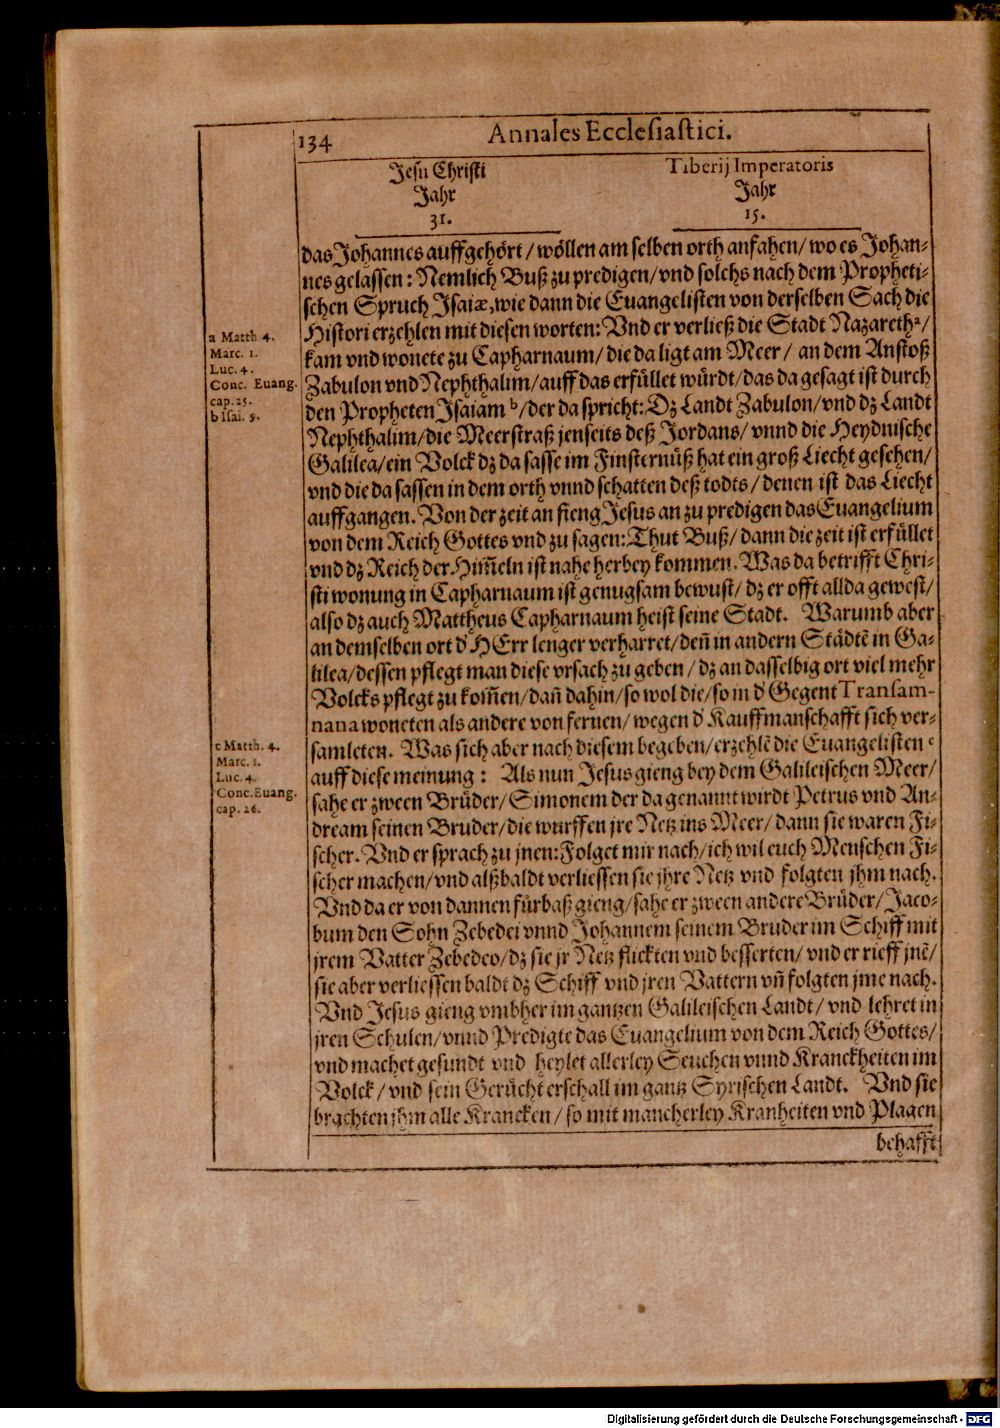 134 Annales Ecclesiastici.
Jesu Christi
Jahr
31.
Tiberij Imperatoris
Jahr
15.
das Johannes auffgehört / wöllen am selben orth anfahen / wo es Johan-
nes gelassen: Nemlich Buß zu predigen / vnd solchs nach dem Propheti-
schen Spruch Isaiæ, wie dann die Euangelisten von derselben Sach die
Histori erzehlen mit diesen worten: Vnd er verließ die Stadt Nazareth ª /
kam vnd wonete zu Capharnaum / die da ligt am Meer / an dem Anstoß
Zabulon vnd Nephthalim / auff das erfüllet würdt / das da gesagt ist durch
den Propheten Isaiam ᵇ / der da spricht: Dz Landt Zabulon / vnd dz Landt
Nephthalim / die Meerstraß jenseits deß Jordans / vnnd die Heydnische
Galilea / ein Volck dz da sasse im Finsternüß hat ein groß Liecht gesehen /
vnd die da sassen in dem orth vnnd schatten deß todts / denen ist das Liecht
auffgangen. Von der zeit an fieng Jesus an zu predigen das Euangelium
von dem Reich Gottes vnd zu sagen: Thut Buß / dann die zeit ist erfüllet
vnd dz Reich der Him̃eln ist nahe herbey kommen. Was da betrifft Chri-
sti wonung in Capharnaum ist genugsam bewust / dz er offt allda gewest /
also dz auch Mattheus Capharnaum heist seine Stadt. Warumb aber
an demselben ort d' HErr lenger verharret / deñ in andern Städtẽ in Ga-
lilea / dessen pflegt man diese vrsach zu geben / dz an dasselbig ort viel mehr
Volcks pflegt zu kom̃en / dañ dahin / so wol die / so in d' Gegent Transam-
nana woneten als andere von fernen / wegen d' Kauffmanschafft sich ver-
samleten. Was sich aber nach diesem begeben / erzehlẽ die Euangelisten ᶜ
auff diese meinung: Als nun Jesus gieng bey dem Galileischen Meer /
sahe er zween Brüder / Simonem der da genannt wirdt Petrus vnd An-
dream seinen Bruder / die wurffen jre Netz ins Meer / dann sie waren Fi-
scher. Vnd er sprach zu jnen: Folget mir nach / ich wil euch Menschen Fi-
scher machen / vnd alßbaldt verliessen sie jhre Netz vnd folgten jhm nach.
Vnd da er von dannen fürbaß gieng / sahe er zween andere Brüder / Jaco-
bum den Sohn Zebedei vnnd Johannem seinem Bruder im Schiff mit
jrem Vatter Zebedeo / dz sie jr Netz flickten vnd besserten / vnd er rieff jnẽ /
sie aber verliessen baldt dz Schiff vnd jren Vattern vñ folgten jme nach.
Vnd Jesus gieng vmbher im gantzen Galileischen Landt / vnd lehret in
jren Schulen / vnnd Predigte das Euangelium von dem Reich Gottes /
vnd machet gesundt vnd heylet allerley Seuchen vnnd Kranckheiten im
Volck / vnd sein Gerücht erschall im gantz Syrischen Landt. Vnd sie
brachten jhm alle Krancken / so mit mancherley Kranheiten vnd Plagen
behafft
a Matth. 4.
Marc. 1.
Luc. 4.
Conc. Euang.
cap. 25.
b Isai. 9.
c Matth. 4.
Marc. 1.
Luc. 4.
Conc. Euang.
cap. 26.
Digitalisierung gefördert durch die Deutsche Forschungsgemeinschaft - DFG